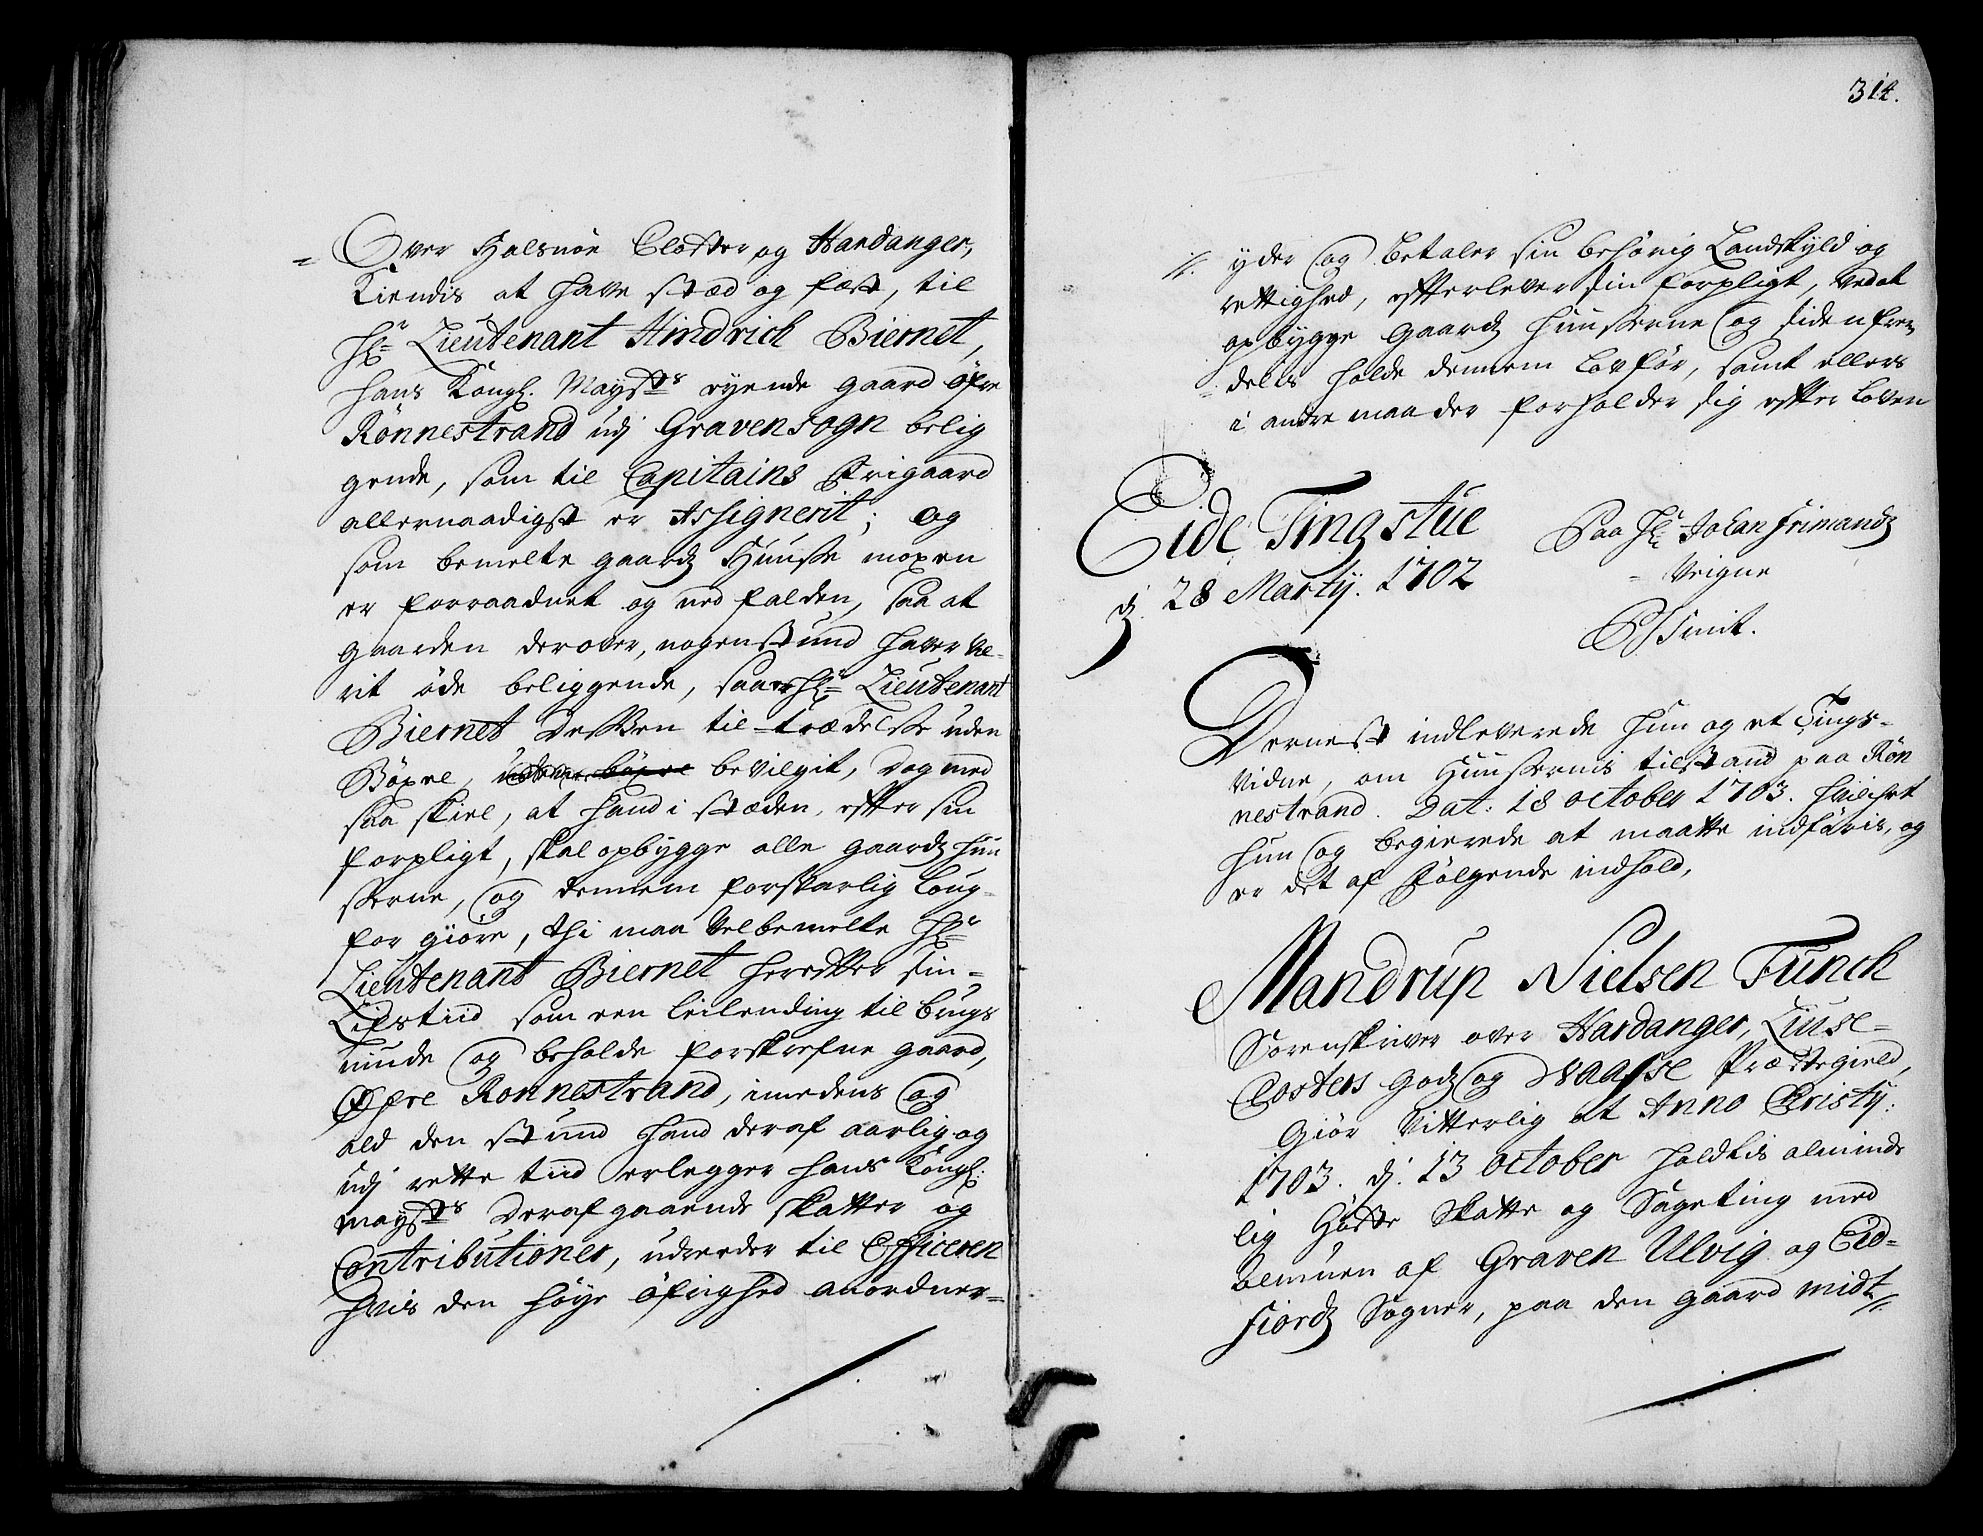 = Over Halsnöe Closter og Hardanger,
Kiendis at have stæd og fæst, til
Hr. Lieutenant Hindrich Biernet,
hans Kongl. Mayts. eyende gaard öfre
Rönnestrand udj Gravensogn belig
gende, som til Capitains frigaard
allernaadigst er Assignerit; og
som bemelte gaardz Huuse moxen
er forraadnet og ned falden, saa at
gaarden derover, nogen stund haver væ-
rit øde beliggende, saa er Hr. Lieutenant
Biernet dessen tiltrædelse uden
Böxel, bevilgit, dog med
saa skiel, at hand i stæden, efter sin
forpligt, skal opbygge alle gaardz huu
serne, og dennem forsvarlig loug-
for giöre, thi maa Velbemelte Hr.
Lieutenant Biernet herefter sin
Lifstiid som een leilending til brugs
niude og beholde forskrefne gaard,
Øfre Ronnestrand, imedens og
ald den stund hand deraf aarlig og
udj rette tiid erlegger hans Kongl:
mayts. deraf gaaende skatter og
Contributioner, udreeder til Officeren
hvis den höye öfrighed anordner=
314.
//. yder og betaler sin behörig Landskyld og
rettighed, efterlever sin forpligt, ved at
opbygge gaardz huuserne og siden frem
deles holde dennem lovför, samt ellers
i andre maader forholder sig efter loven
Eide Tingstue
dj. 28 Martij. 1702
Paa Hr. Johan Frimandz
Veigne
P Smit.
Dernest indleverede hun og et Tings-
vidne, om Huusernis tilstand paa Rön
nestrand. Dat: 18 october 1703. hvilchet
hun og begierede at maatte indföris, og
er det af fölgende indhold,
Mandrup Nielsen Funch
Sorenskriver over Hardanger, Liuse-
Closters godz og Waasse Præstegield,
Giör Vitterlig at Anno Cristij.
1703. dj. 13 october holdtis alminde
lig Höste Skatte og Sageting med
almuen af Graven Ulvig og Eid-
fiordz Sogner, paa den gaard midt //